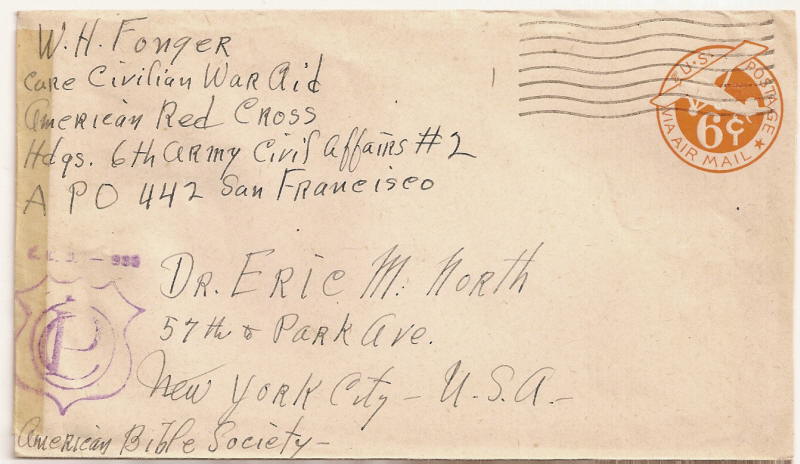 W.H. Fonger
care Civilian War Aid
American Red Cross
Hdqs. 6th Army Civil Affairs #2
A PO 442 San Francisco
U.S. POSTAGE
6¢
VIA AIR MAIL
Dr. Eric M. North
57th & Park Ave.
New York City - U.S.A. -
American Bible Society -